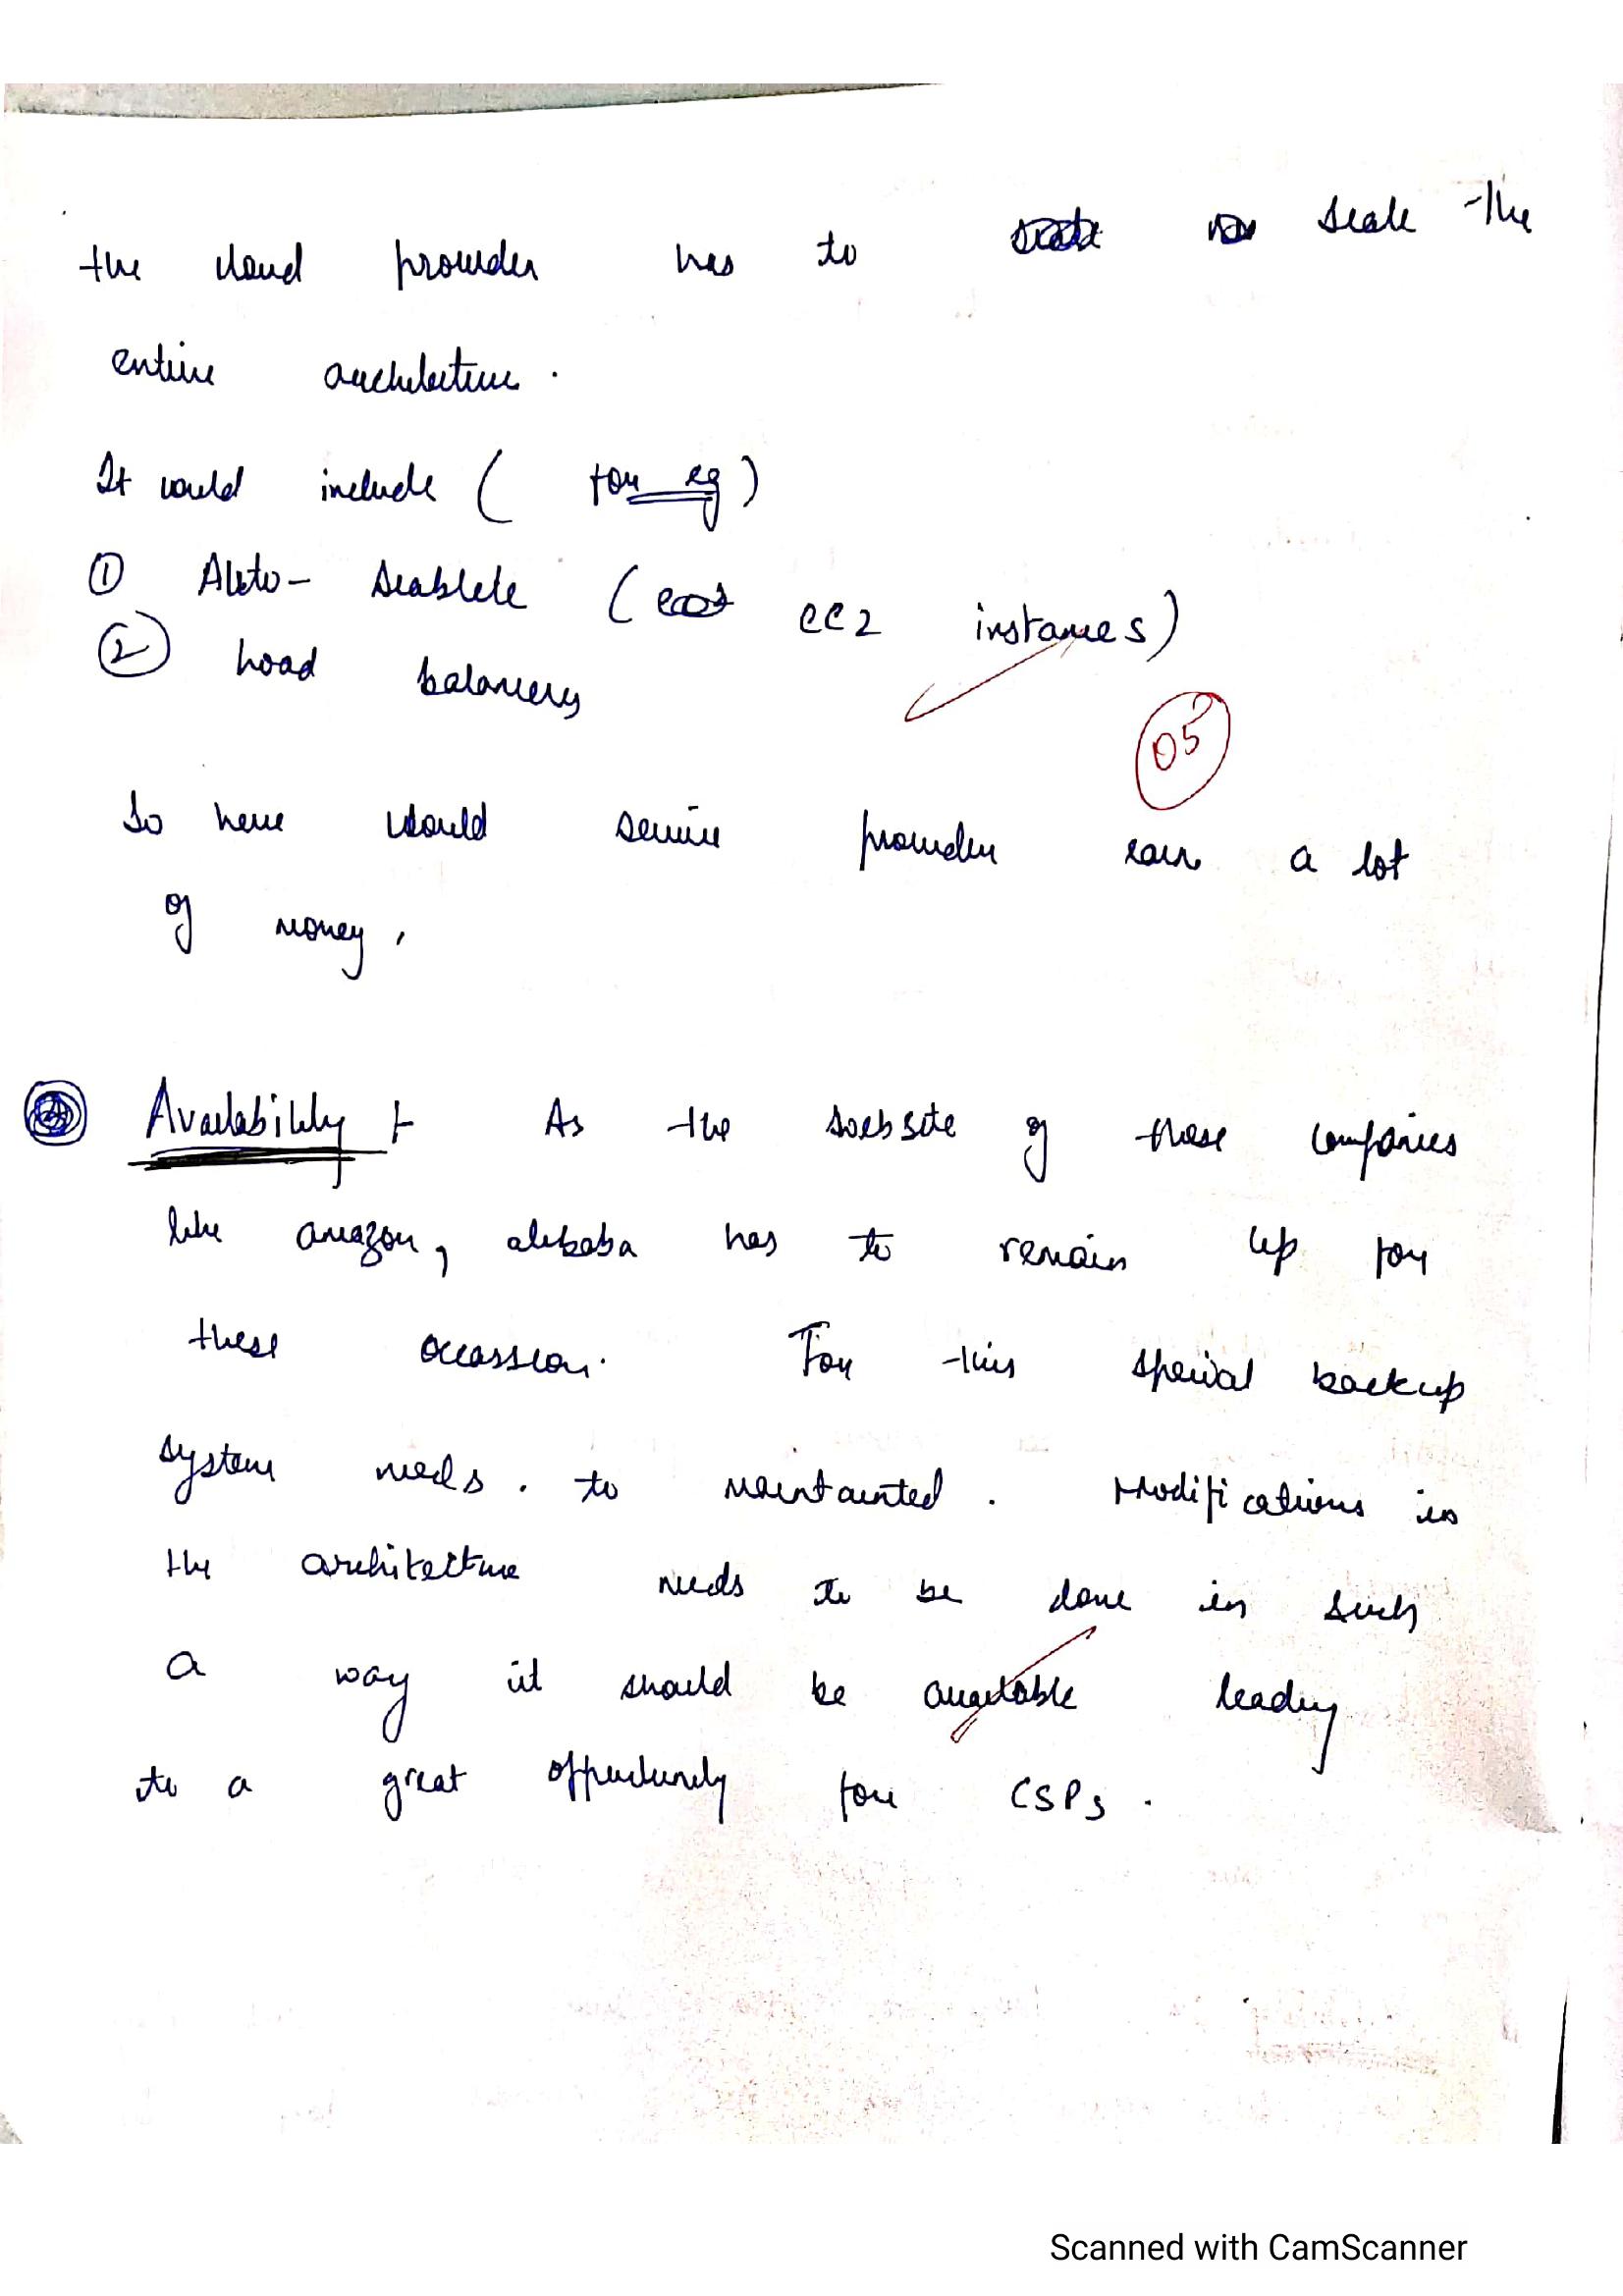 the cloud provider has to scale the
entire architecture.
It would include ( for eg )
① Auto- (EC2 instances)
② Load balancers
05
So here would service provider earn a lot
of money.
Availability :- As the website of these companies
like amazon, alibaba has to remain up for
these occassion. For this special backup
system needs. to maintainted. Modifications in
the architecture needs to be done in such
a way it should be available leading
to a great oppurtunity for CSPs.
Scanned with CamScanner